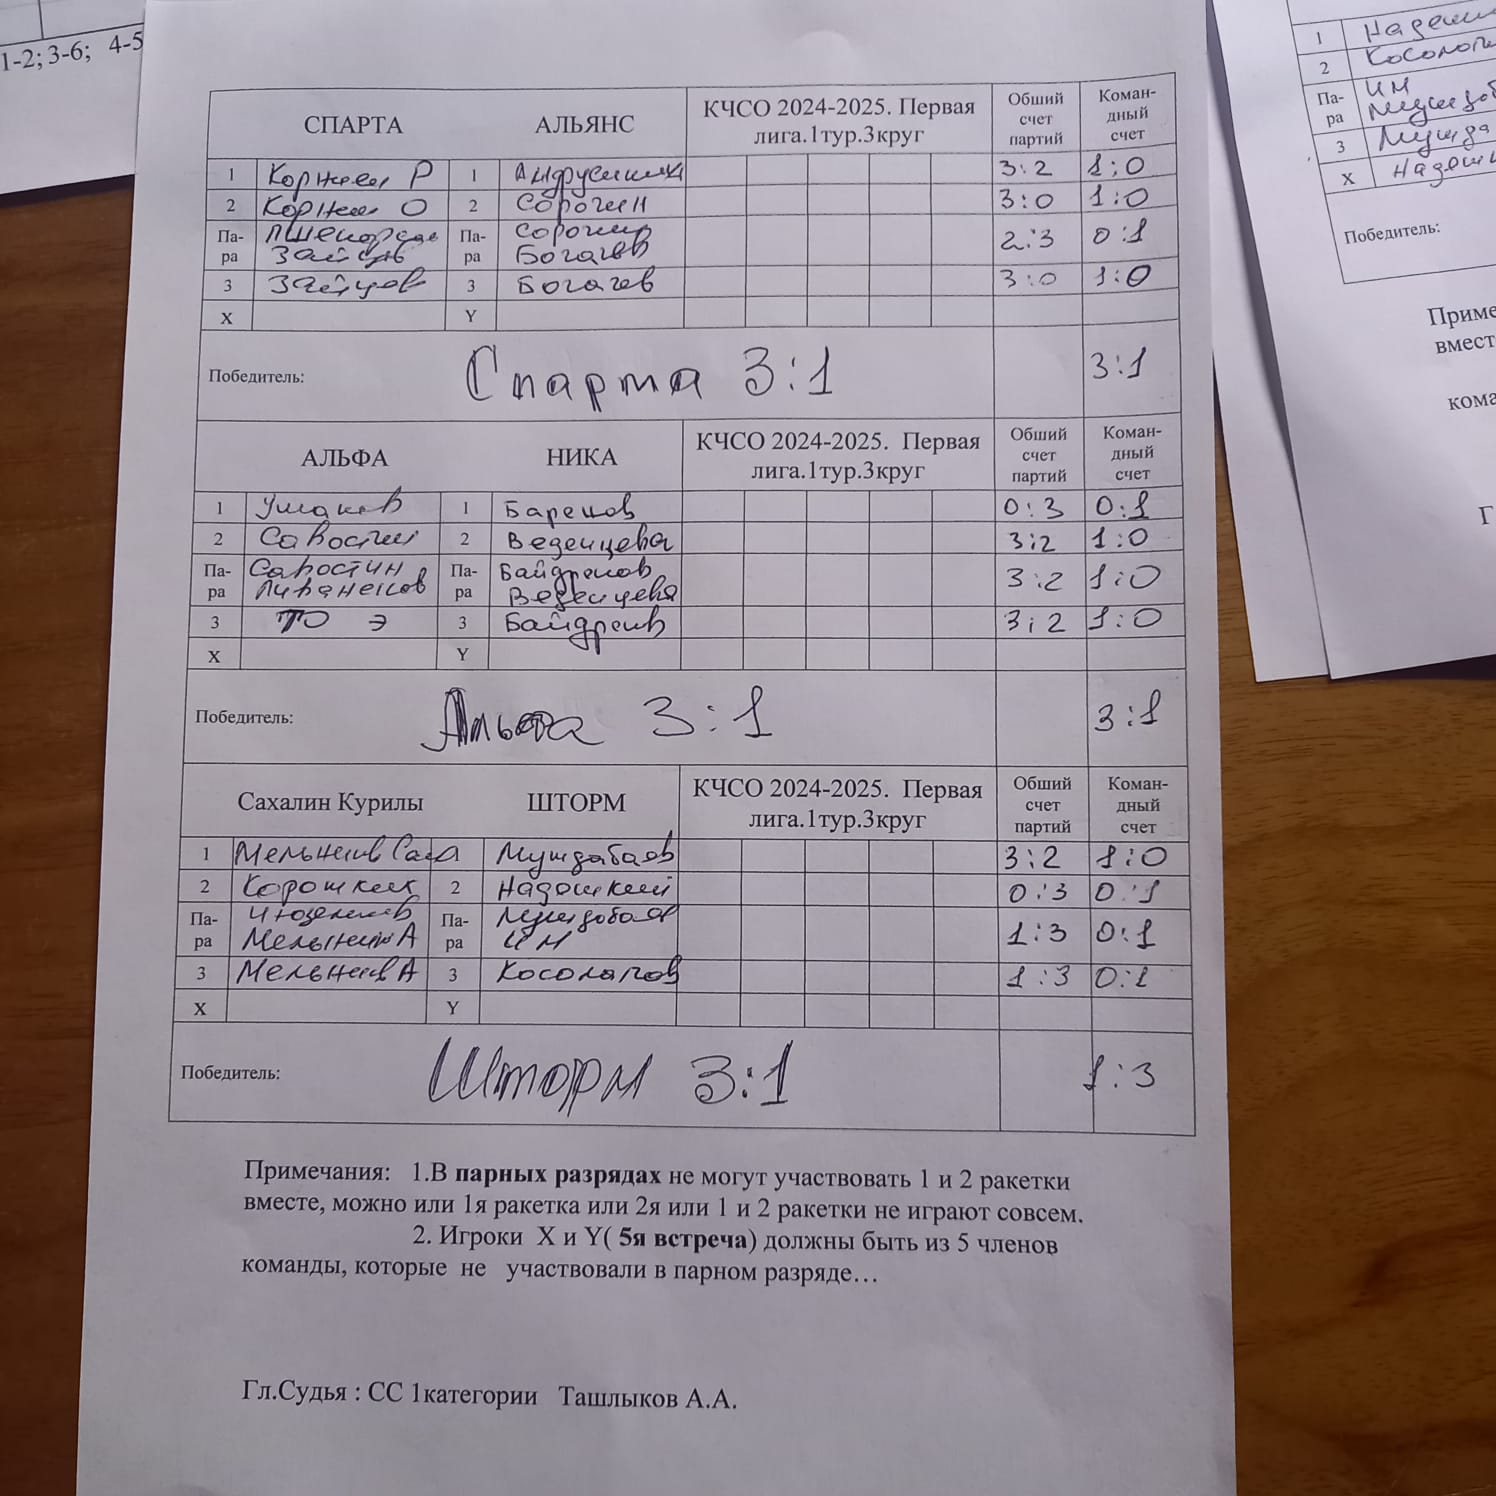 1-2; 3-6; 4-5
СПАРТА АЛЬЯНС КЧСО 2024-2025. Первая лига.1тур.3круг Обший счет партий Коман-дный счет
1 Корнеев Р 1 3:2 1:0
2 Корнеев О 2 Сорочин 3:0 1:0
Па-ра Зайцев Па-ра Сорочин Богачев 2:3 0:1
3 Зайцев 3 Богачев 3:0 1:0
X Y
Победитель: Спарта 3:1 3:1
АЛЬФА НИКА КЧСО 2024-2025. Первая лига.1тур.3круг Обший счет партий Коман-дный счет
1 Ушаков 1 Баренов 0:3 0:1
2 Савостин 2 Веденцева 3:2 1:0
Па-ра Савостин Па-ра Байдренов Веденцева 3:2 1:0
3 ТО Э 3 3:2 1:0
X Y
Победитель: Альфа 3:1 3:1
Сахалин Курилы ШТОРМ КЧСО 2024-2025. Первая лига.1тур.3круг Обший счет партий Коман-дный счет
1 Муждабаев 3:2 1:0
2 2 0:3 0:1
Па-ра Па-ра Им 1:3 0:1
3 3 Косолапов 1:3 0:1
X Y
Победитель: Шторм 3:1 1:3
Примечания: 1.В парных разрядах не могут участвовать 1 и 2 ракетки
вместе, можно или 1я ракетка или 2я или 1 и 2 ракетки не играют совсем.
2. Игроки X и Y( 5я встреча) должны быть из 5 членов
команды, которые не участвовали в парном разряде…
Гл.Судья : СС 1категории Ташлыков А.А.
1
2
Па-ра ИМ
3
X
Победитель: